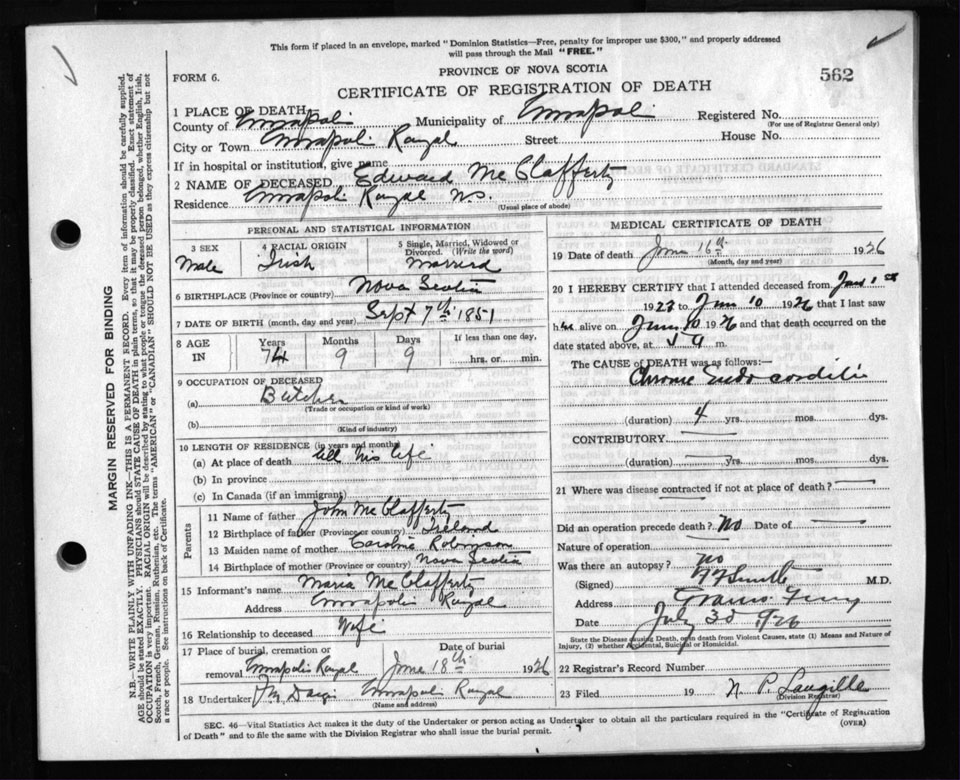 This form if placed in an envelope, marked "Dominion Statistics—Free, penalty for improper use $300," and properly addressed
will pass through the Mail "FREE."
FORM 6.
PROVINCE OF NOVA SCOTIA
562
CERTIFICATE OF REGISTRATION OF DEATH
1 PLACE OF DEATH—
County of Annapolis Municipality of Annapolis Registered No.
(For use of Registrar General only)
City or Town Annapolis Royal Street House No.
If in hospital or institution, give name
2 NAME OF DECEASED Edward Mc Clafferty
Residence Annapolis Royal N.S.
(Usual place of abode)
PERSONAL AND STATISTICAL INFORMATION
3 SEX 4 RACIAL ORIGIN 5 Single, Married, Widowed or
Divorced. (Write the word)
Male Irish Married
6 BIRTHPLACE (Province or country) Nova Scotia
7 DATE OF BIRTH (month, day and year) Sept 7th 1851
8 AGE IN Years Months Days If less than one day,
74 9 9 hrs. or min.
9 OCCUPATION OF DECEASED
(a) Butcher
(Trade or occupation or kind of work)
(b)
(Kind of industry)
10 LENGTH OF RESIDENCE (in years and months)
(a) At place of death all his life
(b) In province
(c) In Canada (if an immigrant)
Parents
11 Name of father John Mc Clafferty
12 Birthplace of father (Province or country) Ireland
13 Maiden name of mother Caroline Robinson
14 Birthplace of mother (Province or country) Nova Scotia
15 Informant's name Maria Mc Clafferty
Address Annapolis Royal
16 Relationship to deceased Wife
17 Place of burial, cremation or Date of burial
removal Annapolis Royal June 18th 1926
18 Undertaker Annapolis Royal
(Name and address)
MEDICAL CERTIFICATE OF DEATH
19 Date of death June 16th 1926
(Month, day and year)
20 I HEREBY CERTIFY that I attended deceased from 1st
1923 to June 10 1926 that I last saw
him alive on June 10 1926 and that death occurred on
date stated above, at m.
The CAUSE OF DEATH was as follows:—
Chronic Endocarditis
(duration) 4 yrs. mos. dys.
CONTRIBUTORY
(duration) yrs. mos. dys.
21 Where was disease contracted if not at place of death?
Did an operation precede death? No Date of
Nature of operation
Was there an autopsy? No
(Signed) M.D.
Address
Date July 30 1926
State the Disease causing Death, or in death from Violent Causes, state (1) Means and Nature of
Injury, (2) whether Accidental, Suicidal or Homicidal.
22 Registrar's Record Number
23 Filed 19 N. P. Langille
(Division Registrar)
SEC. 46—Vital Statistics Act makes it the duty of the Undertaker or person acting as Undertaker to obtain all the particulars required in the "Certificate of Registration
of Death" and to file the same with the Division Registrar who shall issue the burial permit.
(OVER)
MARGIN RESERVED FOR BINDING
N.B.—WRITE PLAINLY WITH UNFADING INK—THIS IS A PERMANENT RECORD. Every item of information should be carefully supplied.
AGE should be stated EXACTLY. PHYSICIANS should STATE CAUSE OF DEATH in plain terms, so that it may be properly classified. Exact statement of
OCCUPATION is very important. RACIAL ORIGIN will be described by stating to what people or tongue the deceased person belonged, whether English, Irish,
Scotch, French, German, Russian, Ruthenian, etc. The terms "AMERICAN" or "CANADIAN" SHOULD NOT BE USED as they express citizenship but not
a race or people. See instructions on back of Certificate.